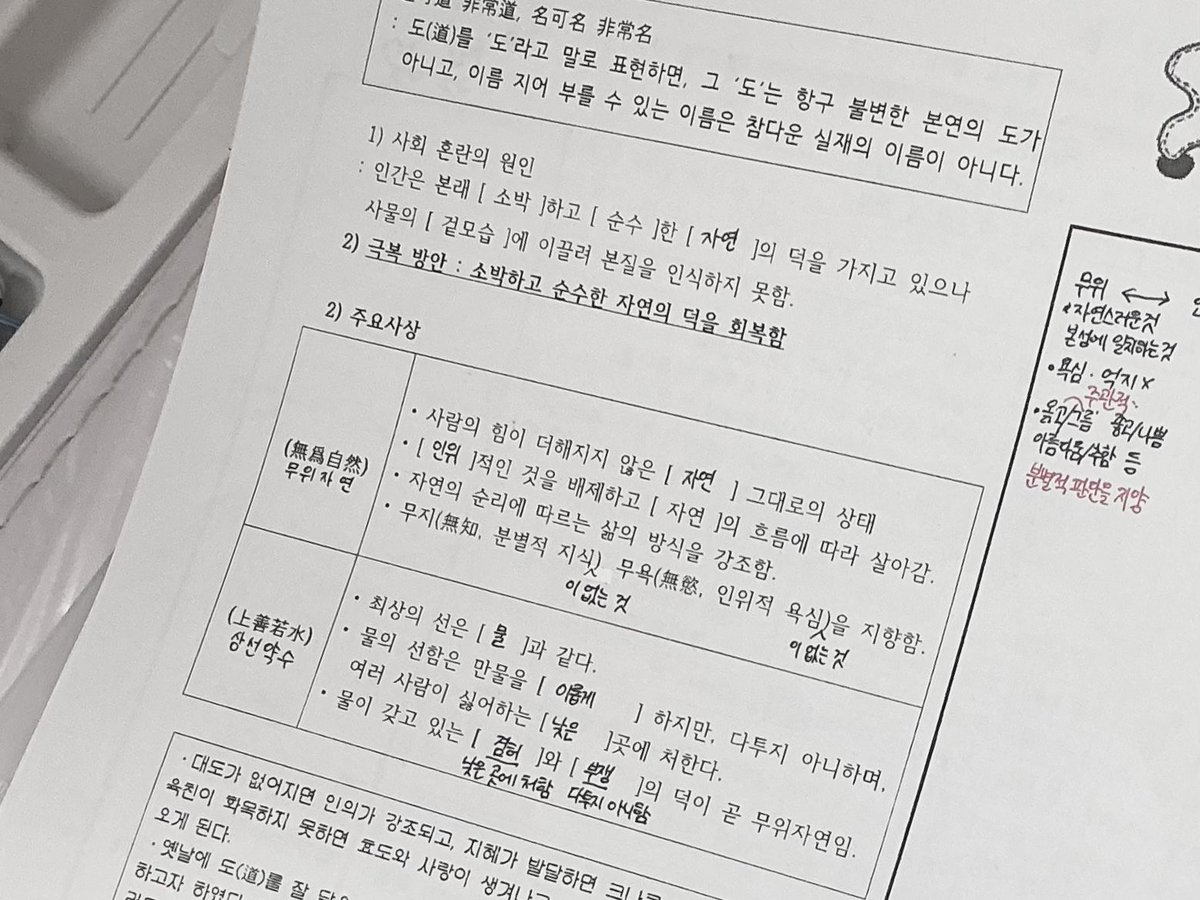 非常道, 名可名 非常名
: 도(道)를 '도'라고 말로 표현하면, 그 '도'는 항구 불변한 본연의 도가
아니고, 이름 지어 부를 수 있는 이름은 참다운 실재의 이름이 아니다.
1) 사회 혼란의 원인
: 인간은 본래 [ 소박 ]하고 [ 순수 ]한 [ 자연 ]의 덕을 가지고 있으나
사물의 [ 겉모습 ]에 이끌려 본질을 인식하지 못함.
2) 극복 방안 : 소박하고 순수한 자연의 덕을 회복함
2) 주요사상
(無爲自然)
무위자연
• 사람의 힘이 더해지지 않은 [ 자연 ] 그대로의 상태
• [ 인위 ]적인 것을 배제하고 [ 자연 ]의 흐름에 따라 살아감.
• 자연의 순리에 따르는 삶의 방식을 강조함.
• 무지(無知, 분별적 지식) 무욕(無慾, 인위적 욕심)을 지향함.
이 없는 것 이 없는 것
(上善若水)
상선약수
• 최상의 선은 [ 물 ]과 같다.
• 물의 선함은 만물을 [ 이롭게 ] 하지만, 다투지 아니하며,
여러 사람이 싫어하는 [ 낮은 ]곳에 처한다.
• 물이 갖고 있는 [ 겸허 ]와 [ 부쟁 ]의 덕이 곧 무위자연임.
낮은 곳에 처함 다투지 아니함
· 대도가 없어지면 인의가 강조되고, 지혜가 발달하면
육친이 화목하지 못하면 효도와 사랑이 생겨나고
오게 된다.
· 옛날에 도(道)를 잘
하고자 하였다
무위 ↔
• 자연스러운 것
본성에 일치하는 것
• 욕심 · 억지 x
주관적
• 옳고/그름 좋고/나쁨
아름다움/추함 등
분별적 판단을 지양